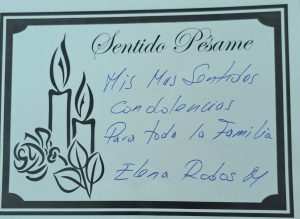 Sentido Pésame
Mis Mas Sentidas
Condolencias
Para toda la Familia
Elena